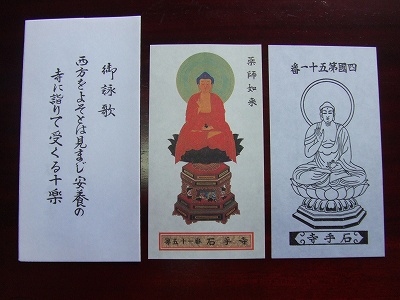 御詠歌
西方をよそとは見まじ安養の
寺に詣りて受くる十樂
薬師如来
第五十一番 石手寺
四國第五十一番
石手寺